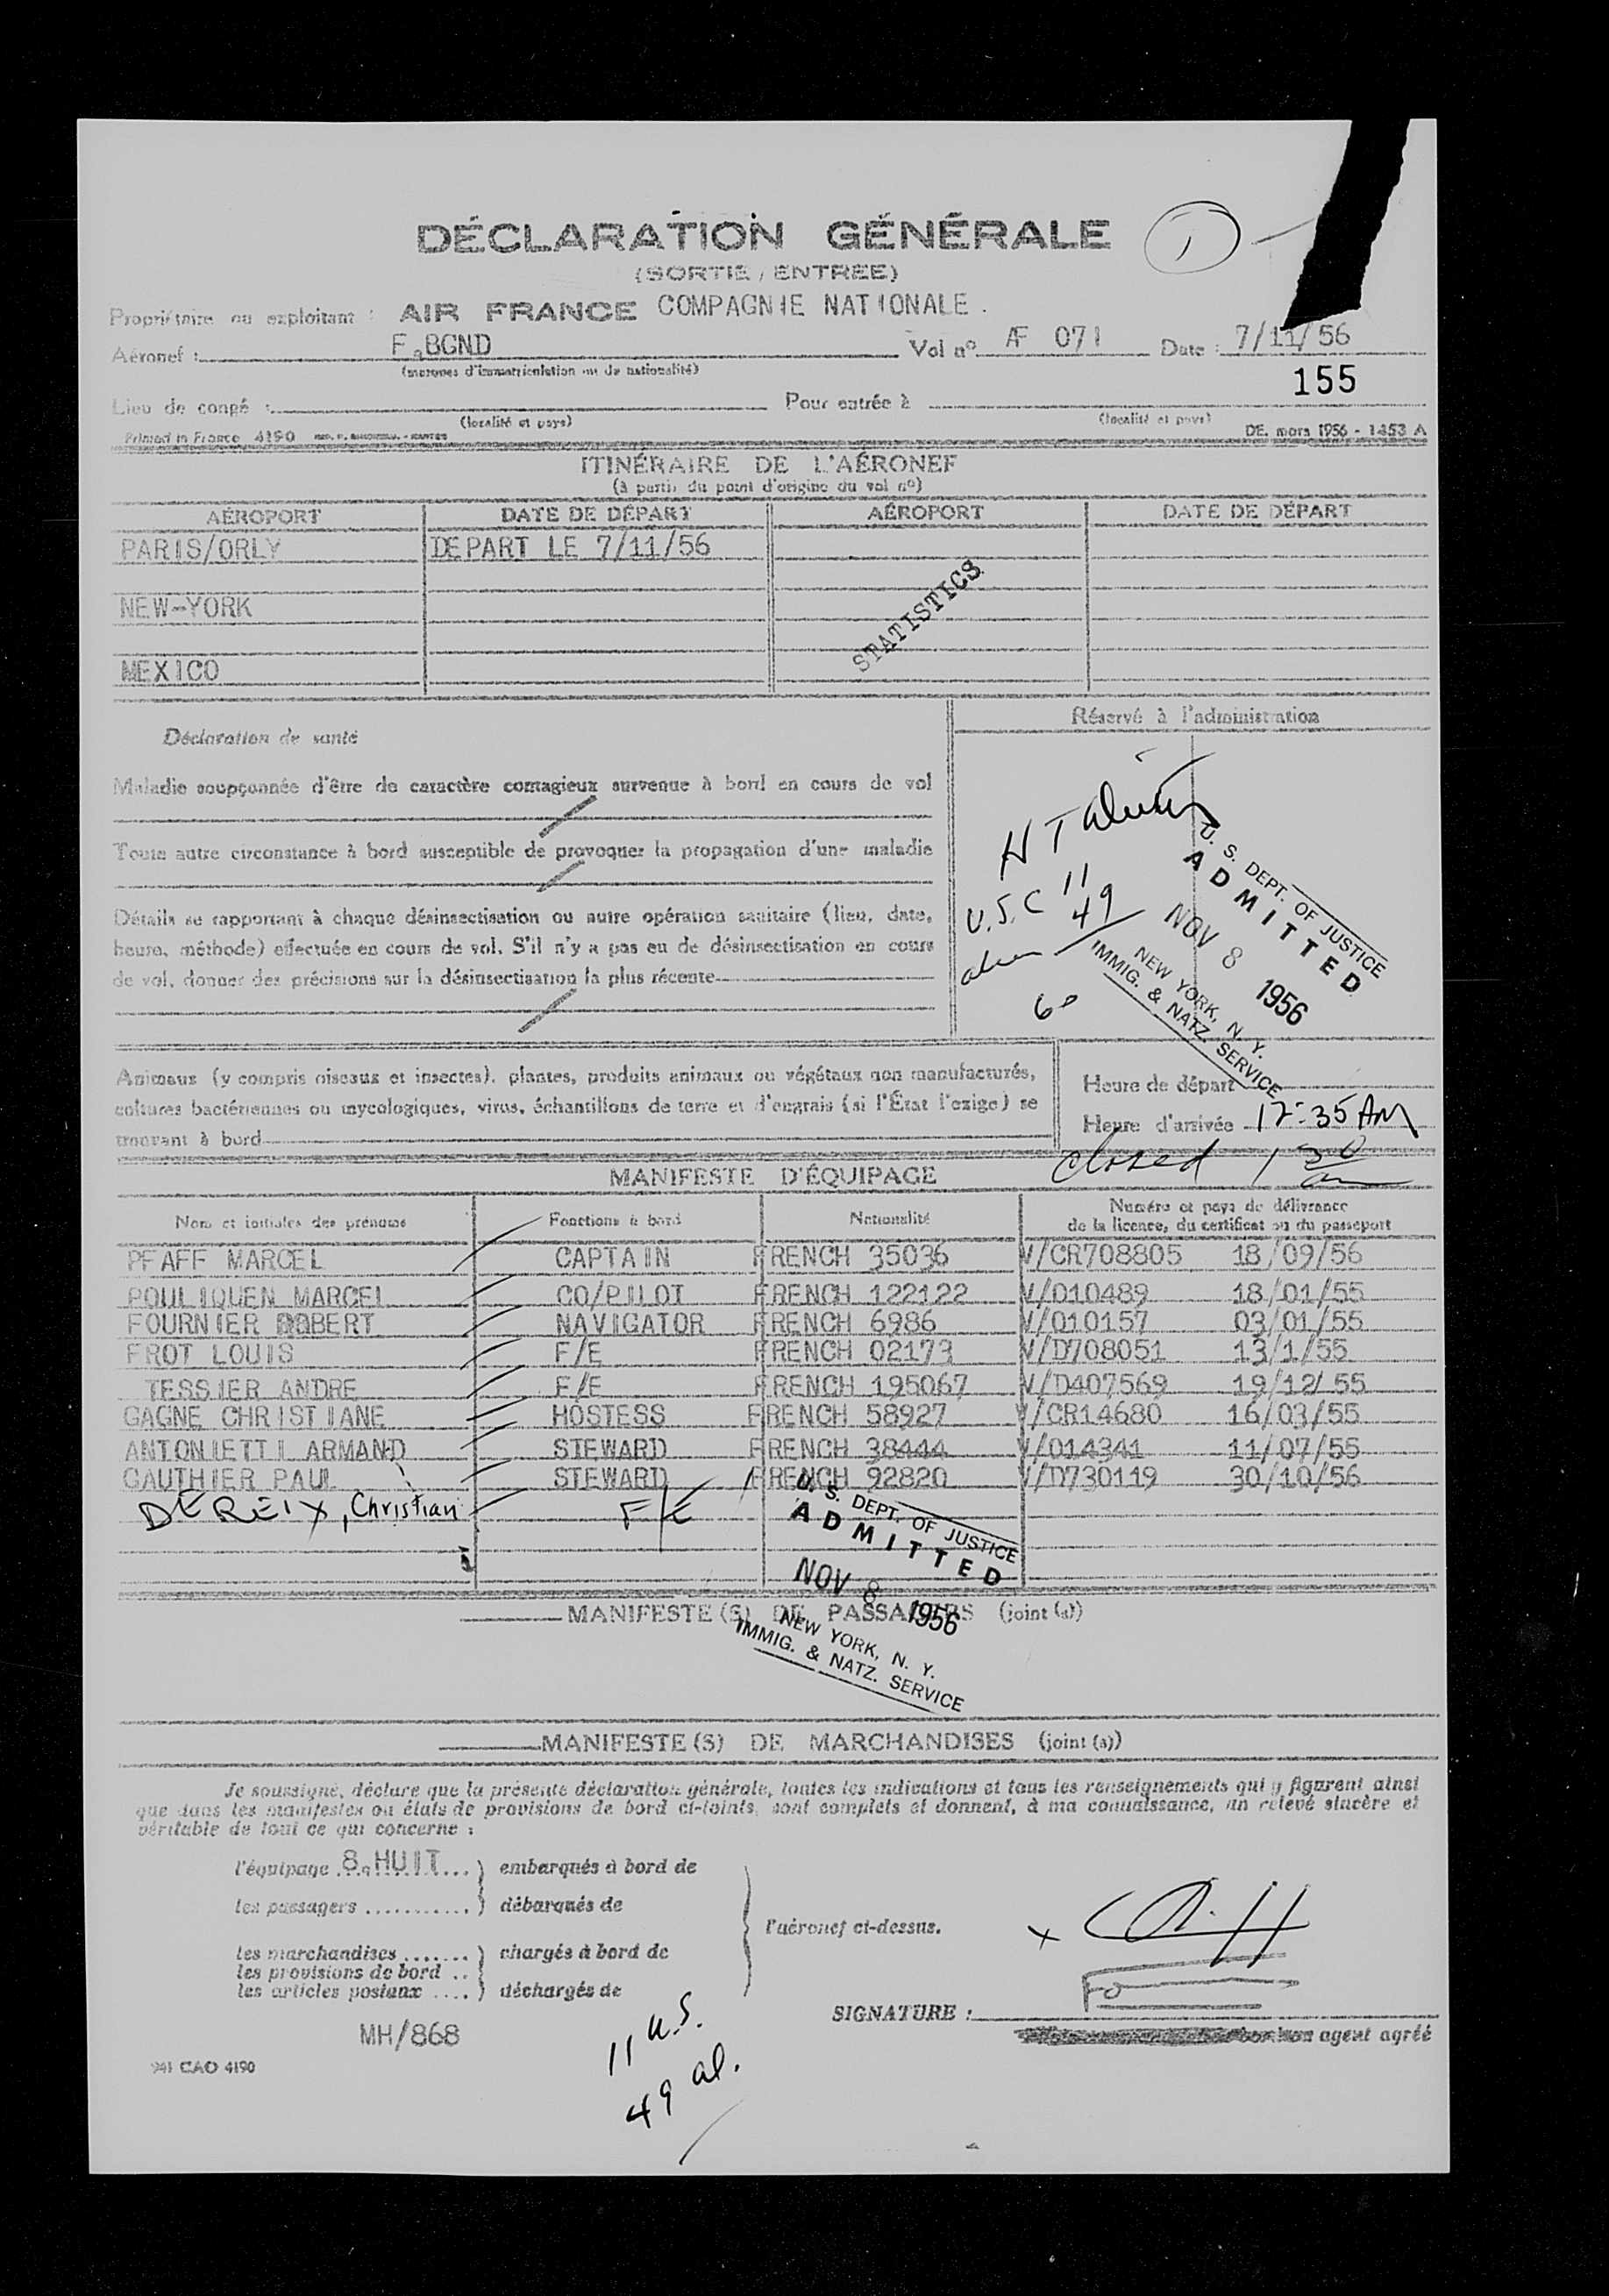 DÉCLARATION GÉNÉRALE
1
(SORTIE / ENTRÉE)
Propriétaire ou exploitant : AIR FRANCE COMPAGNIE NATIONALE.
Aéronef : F BGND Vol nº AF 071 Date : 7/11/56
(marques d'immatriculation ou de nationalité)
155
Lieu de congé : Pour entrée à
(localité et pays) (localité et pays)
Printed in France 4190 DE. mars 1956 - 1453 A
ITINÉRAIRE DE L'AÉRONEF
(à partir du point d'origine du vol nº)
AÉROPORT DATE DE DÉPART AÉROPORT DATE DE DÉPART
PARIS/ORLY DEPART LE 7/11/56
STATISTICS
NEW-YORK
MEXICO
Réservé à l'administration
Déclaration de santé
Maladie soupçonnée d'être de caractère contagieux survenue à bord en cours de vol
Toute autre circonstance à bord susceptible de provoquer la propagation d'une maladie
Détails se rapportant à chaque désinsectisation ou autre opération sanitaire (lieu, date,
heure, méthode) effectuée en cours de vol. S'il n'y a pas eu de désinsectisation en cours
de vol, donner des précisions sur la désinsectisation la plus récente
U.S.C 11
49
60
U. S. DEPT. OF JUSTICE
ADMITTED
NOV 8 1956
NEW YORK, N. Y.
IMMIG. & NATZ. SERVICE
Animaux (y compris oiseaux et insectes), plantes, produits animaux ou végétaux non manufacturés,
cultures bactériennes ou mycologiques, virus, échantillons de terre et d'engrais (si l'État l'exige) se
trouvant à bord
Heure de départ
Heure d'arrivée 12:35 AM
closed 1 30 am
MANIFESTE D'ÉQUIPAGE
Nom et initiales des prénoms Fonctions à bord Nationalité Numéro et pays de délivrance
de la licence, du certificat ou du passeport
PFAFF MARCEL CAPTAIN FRENCH 35036 V/CR708805 18/09/56
POULIQUEN MARCEL CO/PILOT FRENCH 122122 V/010489 18/01/55
FOURNIER ROBERT NAVIGATOR FRENCH 6986 V/010157 03/01/55
FROT LOUIS F/E FRENCH 02173 V/D708051 13/1/55
TESSIER ANDRE F/E FRENCH 195067 V/D407569 19/12/55
GAGNE CHRISTIANE HOSTESS FRENCH 58927 V/CR14680 16/03/55
ANTONIETTI ARMAND STEWARD FRENCH 38444 V/014341 11/07/55
GAUTHIER PAUL STEWARD FRENCH 92820 V/D730119 30/10/56
DEREIX, Christian F/E
U. S. DEPT. OF JUSTICE
ADMITTED
NOV 8 1956
NEW YORK, N. Y.
IMMIG. & NATZ. SERVICE
MANIFESTE(S) DE PASSAGERS (joint (s))
MANIFESTE(S) DE MARCHANDISES (joint (s))
Je soussigné, déclare que la présente déclaration générale, toutes les indications et tous les renseignements qui y figurent ainsi
que dans les manifestes ou états de provisions de bord ci-joints, sont complets et donnent, à ma connaissance, un relevé sincère et
véritable de tout ce qui concerne :
l'équipage 8 HUIT ) embarqués à bord de
les passagers ........... ) débarqués de
l'aéronef ci-dessus.
les marchandises ....... ) chargés à bord de
les provisions de bord ..
les articles postaux .... ) déchargés de
SIGNATURE :
agent agréé
MH/868
11 U.S.
49 al.
941 CAO 4190